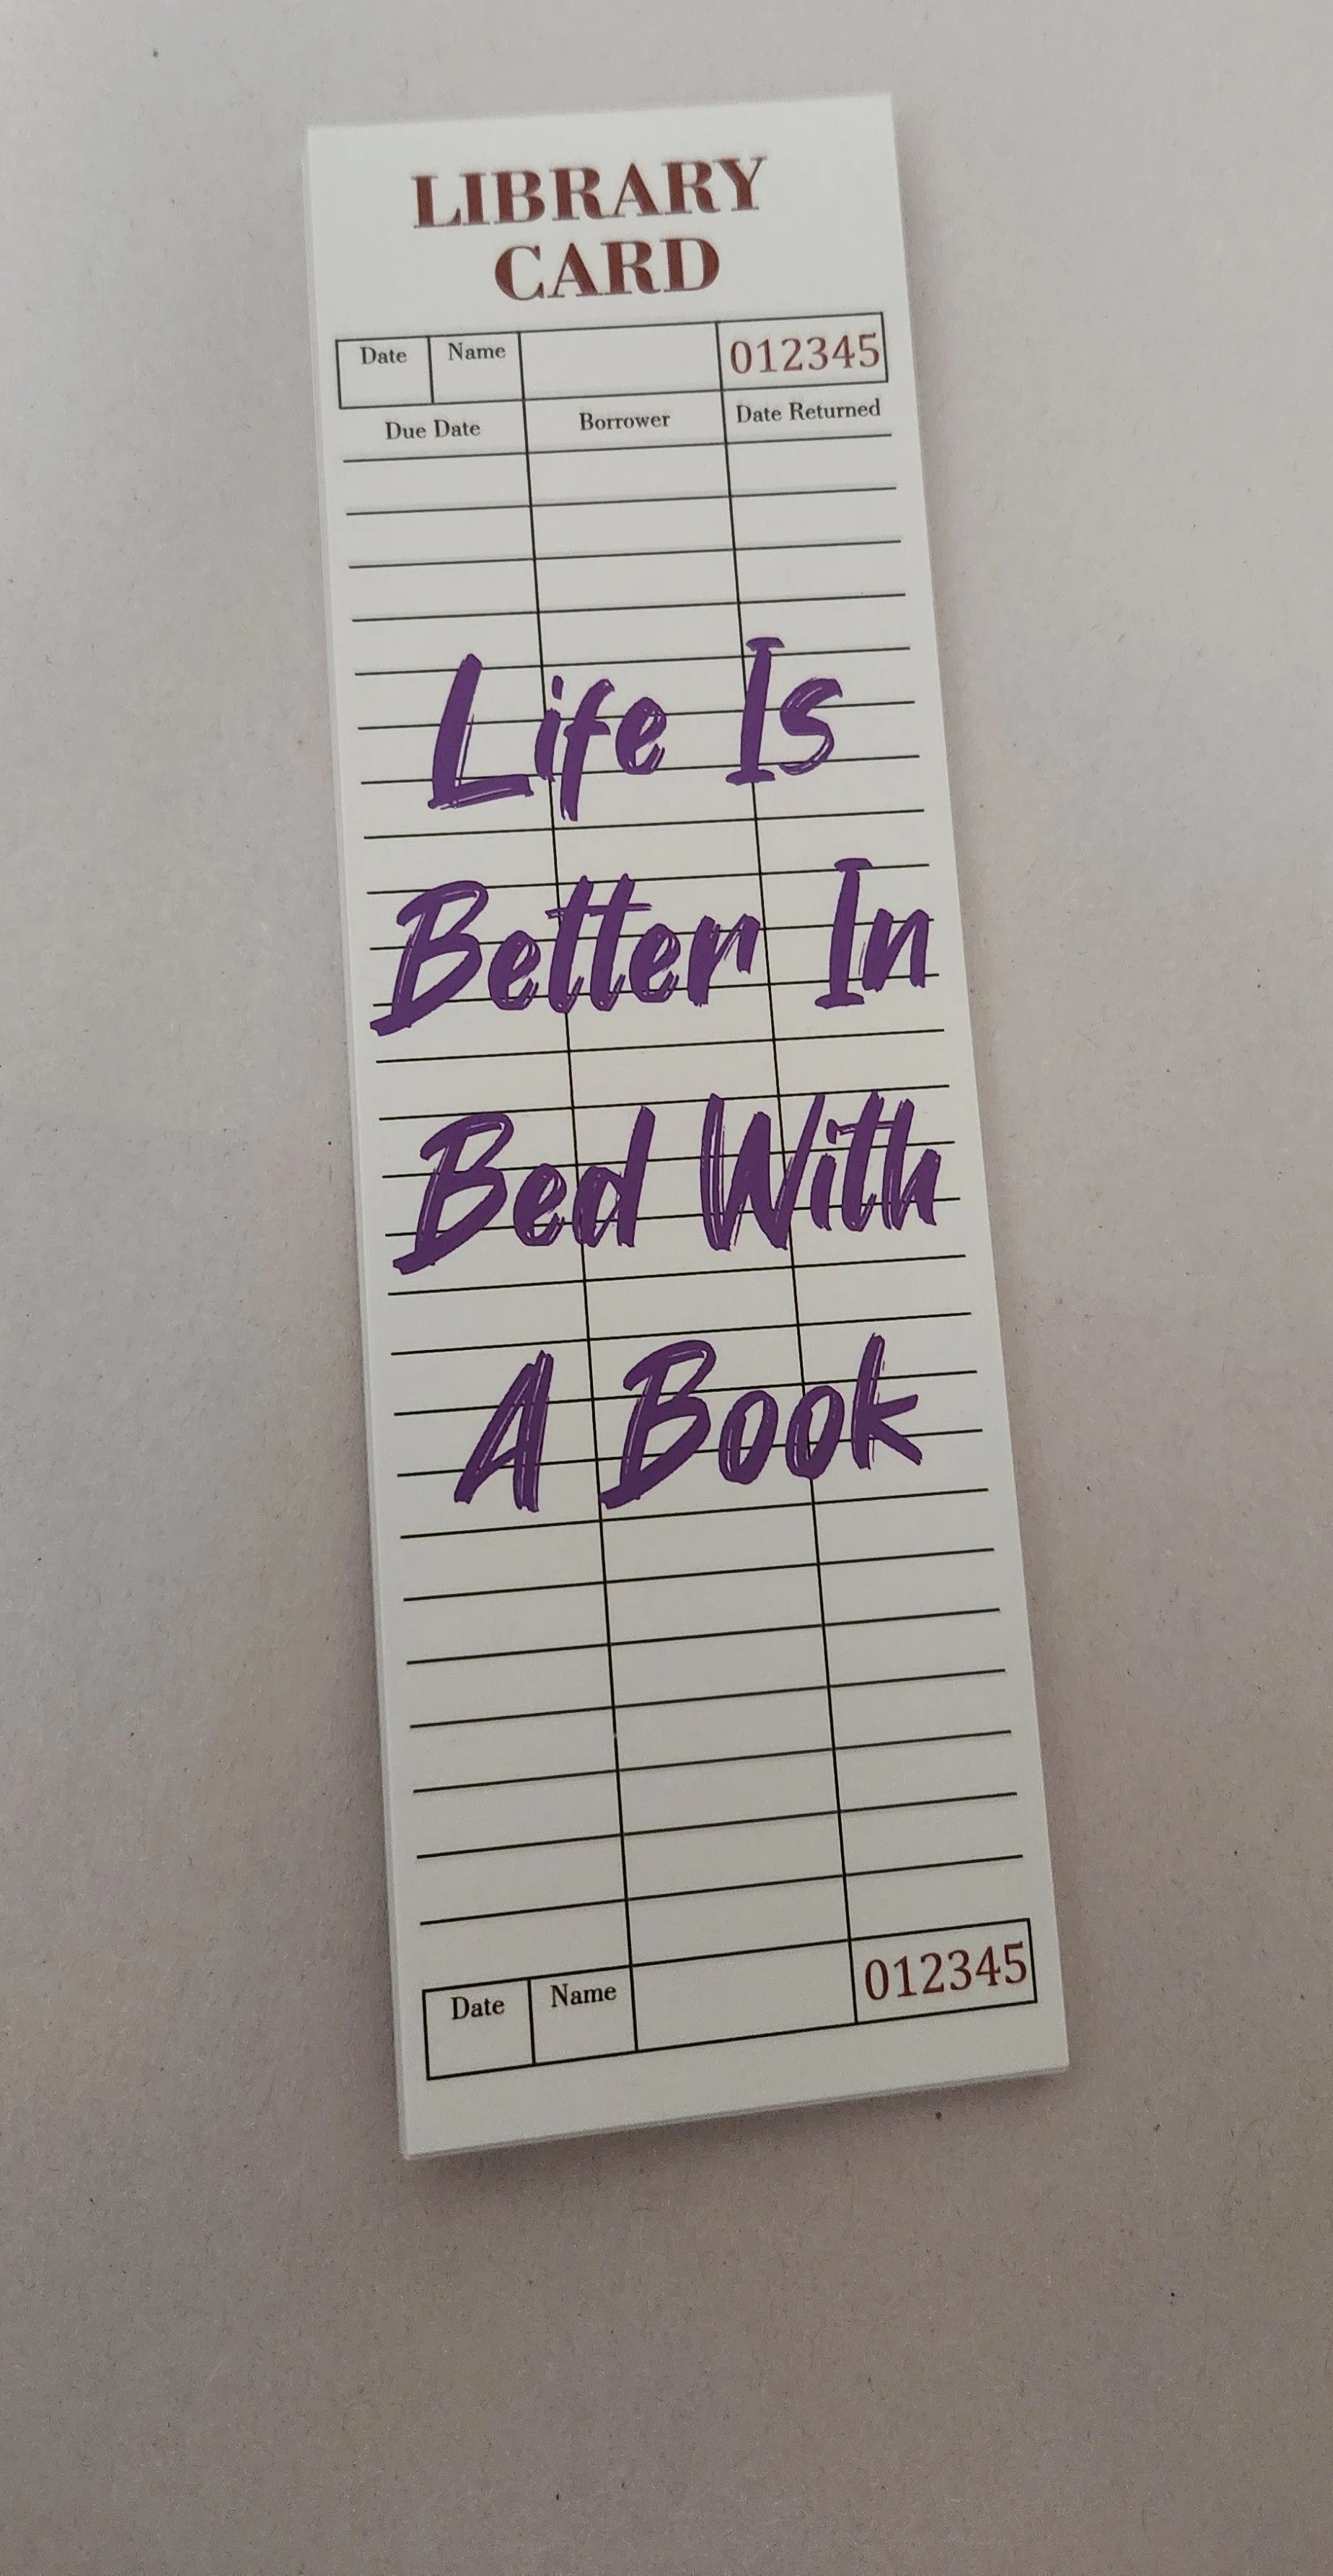 LIBRARY
CARD
Date Name 012345
Due Date Borrower Date Returned
Life Is
Better In
Bed With
A Book
Date Name 012345